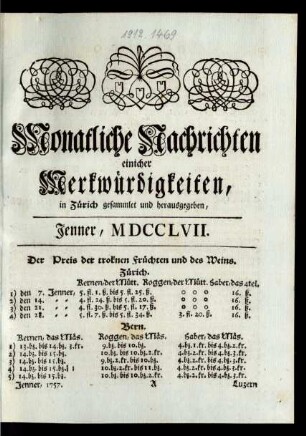 1912. 1469
Monatliche Nachrichten
einicher
Merkwürdigkeiten,
in Zürich gesammlet und herausgegeben,
Jenner, MDCCLVII.
Der Preis der troknen Früchten und des Weins.
Zürich.
Kernen/der Mütt. Roggen/der Mütt. Haber/das 4tel.
1) den 7. Jenner, 5. fl. 1. ß. bis 5. fl. 25. ß. o o o 16. ß.
2) den 14. 4. fl. 24. ß. bis 5. fl. 20. ß. o o o 16. ß.
3) den 21. 4. fl. 30. ß. bis 5. fl. 17. ß. o o o 16. ß.
4) den 28. 5. fl. 7. ß. bis 5. fl. 34. ß. 3. fl. 20. ß. 16. ß.
Bern.
Kernen, das Mäs. Roggen, das Mäs. Haber, das Mäs.
1) 13. bz. bis 14. bz. 3. kr. 9. bz. bis 10. bz. 4. bz. 1. kr. bis 4. bz. 3. kr.
2) 14. bz. bis 15. bz. 10. bz. bis 10. bz. 2. kr. 4. bz. 1. kr. bis 4. bz. 3. kr.
3) 14. bz. bis 15. bz. 9. bz. 1. kr. bis 10. bz. 4. bz. 2. kr. bis 4. bz. 3. kr.
4) 14. bz. bis 15. bz. 10. bz. 2. kr. bis 11. bz. 4. bz. 2. kr. bis 4. bz. 3. kr.
5) 14. bz. bis 15. bz. 10. bz. bis 10. bz. 2. kr. 4. bz. 2. kr. bis 4. bz. 3. kr.
Jenner, 1757. A Luzern